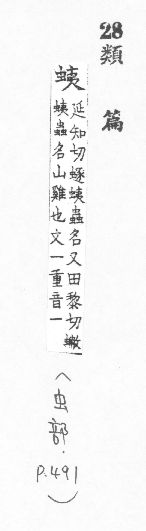 28
類篇
蛦 延知切螔蛦蟲名又田黎切𧓍
蛦蟲名山雞也文一重音一
(虫部.
P.491)